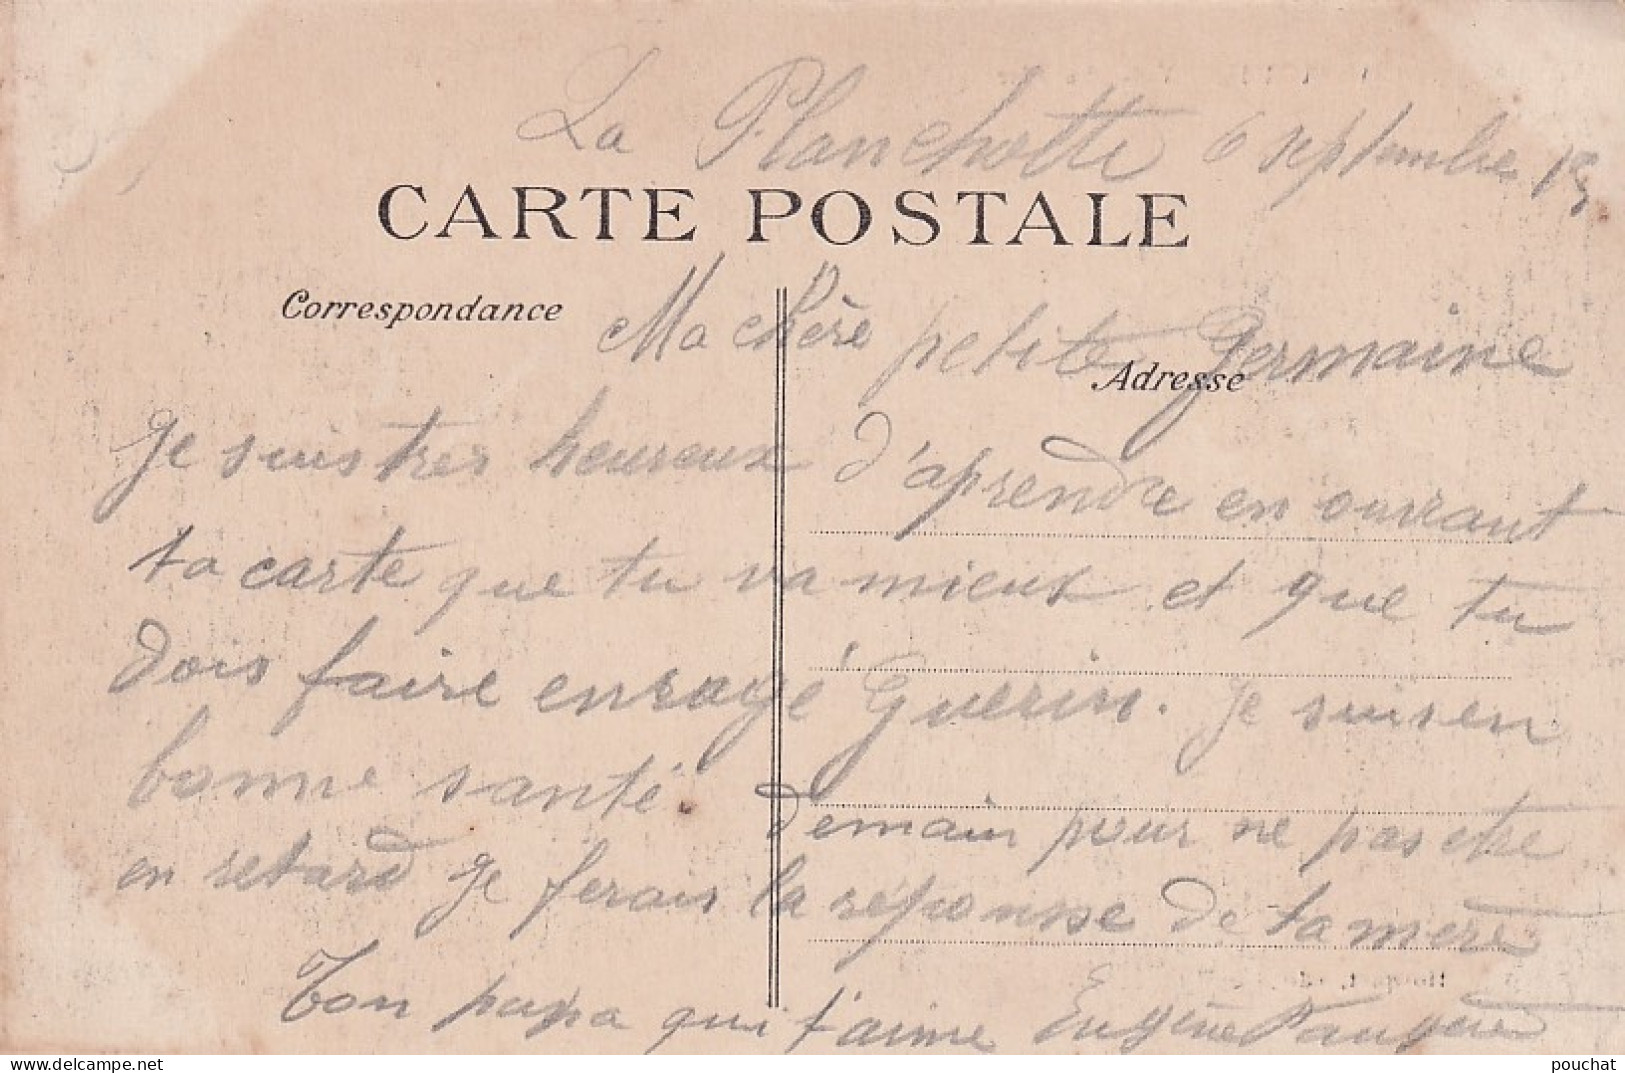 La Planchotte 6 septembre 15
CARTE POSTALE
Correspondance
Ma chère petite Germaine
Adresse
Je suis tres heureux d'aprendre en ouvrant
ta carte que tu va mieux et que tu
dois faire enragé Guerin. Je suis en
bonne santé. demain pour ne pas etre
en retard je ferais la réponsse de ta mère
Ton papa qui t'aime Eugène
www.delcampe.net
pouchat